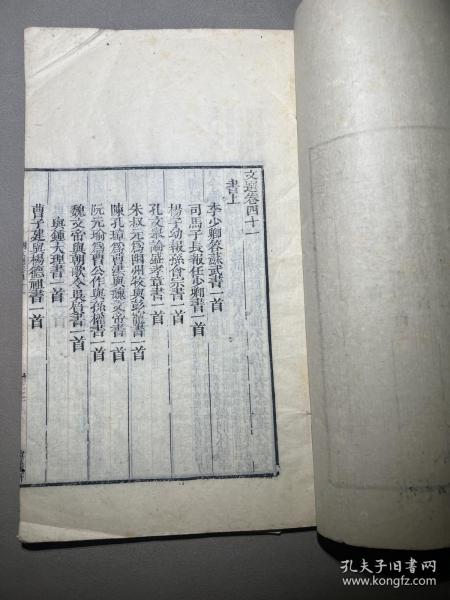 文選卷四十一
書上
李少卿答蘇武書一首
司馬子長報任少卿書一首
楊子幼報孫會宗書一首
孔文舉論盛孝章書一首
朱叔元為幽州牧與彭寵書一首
陳孔璋為曹洪與魏文帝書一首
阮元瑜為曹公作與孫權書一首
魏文帝與朝歌令吳質書一首
與鍾大理書一首
曹子建與楊德祖書一首
孔夫子旧书网
www.kongfz.com